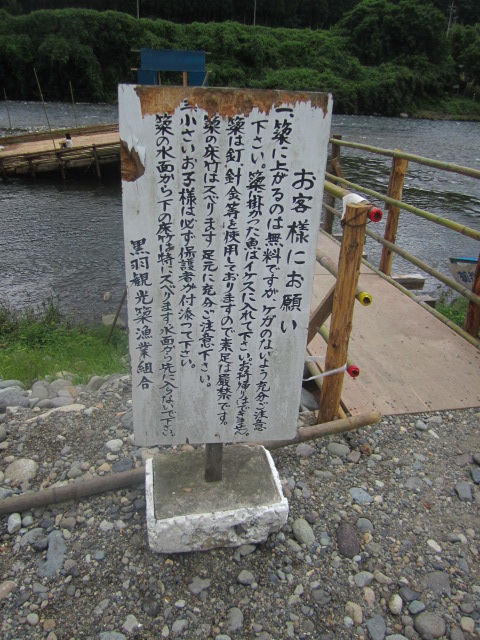 お客様にお願い
一、簗に上がるのは無料ですが、ケガのないよう充分ご注意
下さい。簗に掛かった魚はイケスに入れて下さい。お持帰りはできません。
簗は釘、針金等を使用しておりますので素足は厳禁です。
簗の床竹はスベリます足元に充分ご注意下さい。
小さいお子様は必ず保護者が付添って下さい。
簗の水面から下の床竹は特にスベリます水面から先に入らないで下さい
黒羽観光簗漁業組合